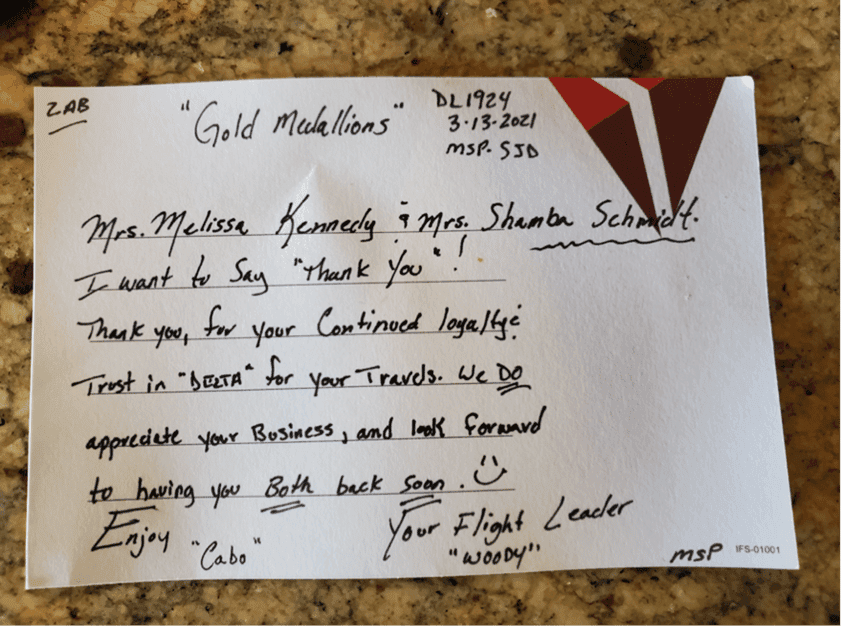 2AB
"Gold Medallions"
DL1924
3-13-2021
MSP-SJD
Mrs. Melissa Kennedy & Mrs. Shamba Schmidt.
I want to Say "Thank You"!
Thank you, for your Continued loyalty &
Trust in "DELTA" for your Travels. We DO
appreciate your Business, and look forward
to having you Both back Soon.
Enjoy "Cabo"
Your Flight Leader
"WOODY"
MSP
IFS-01001